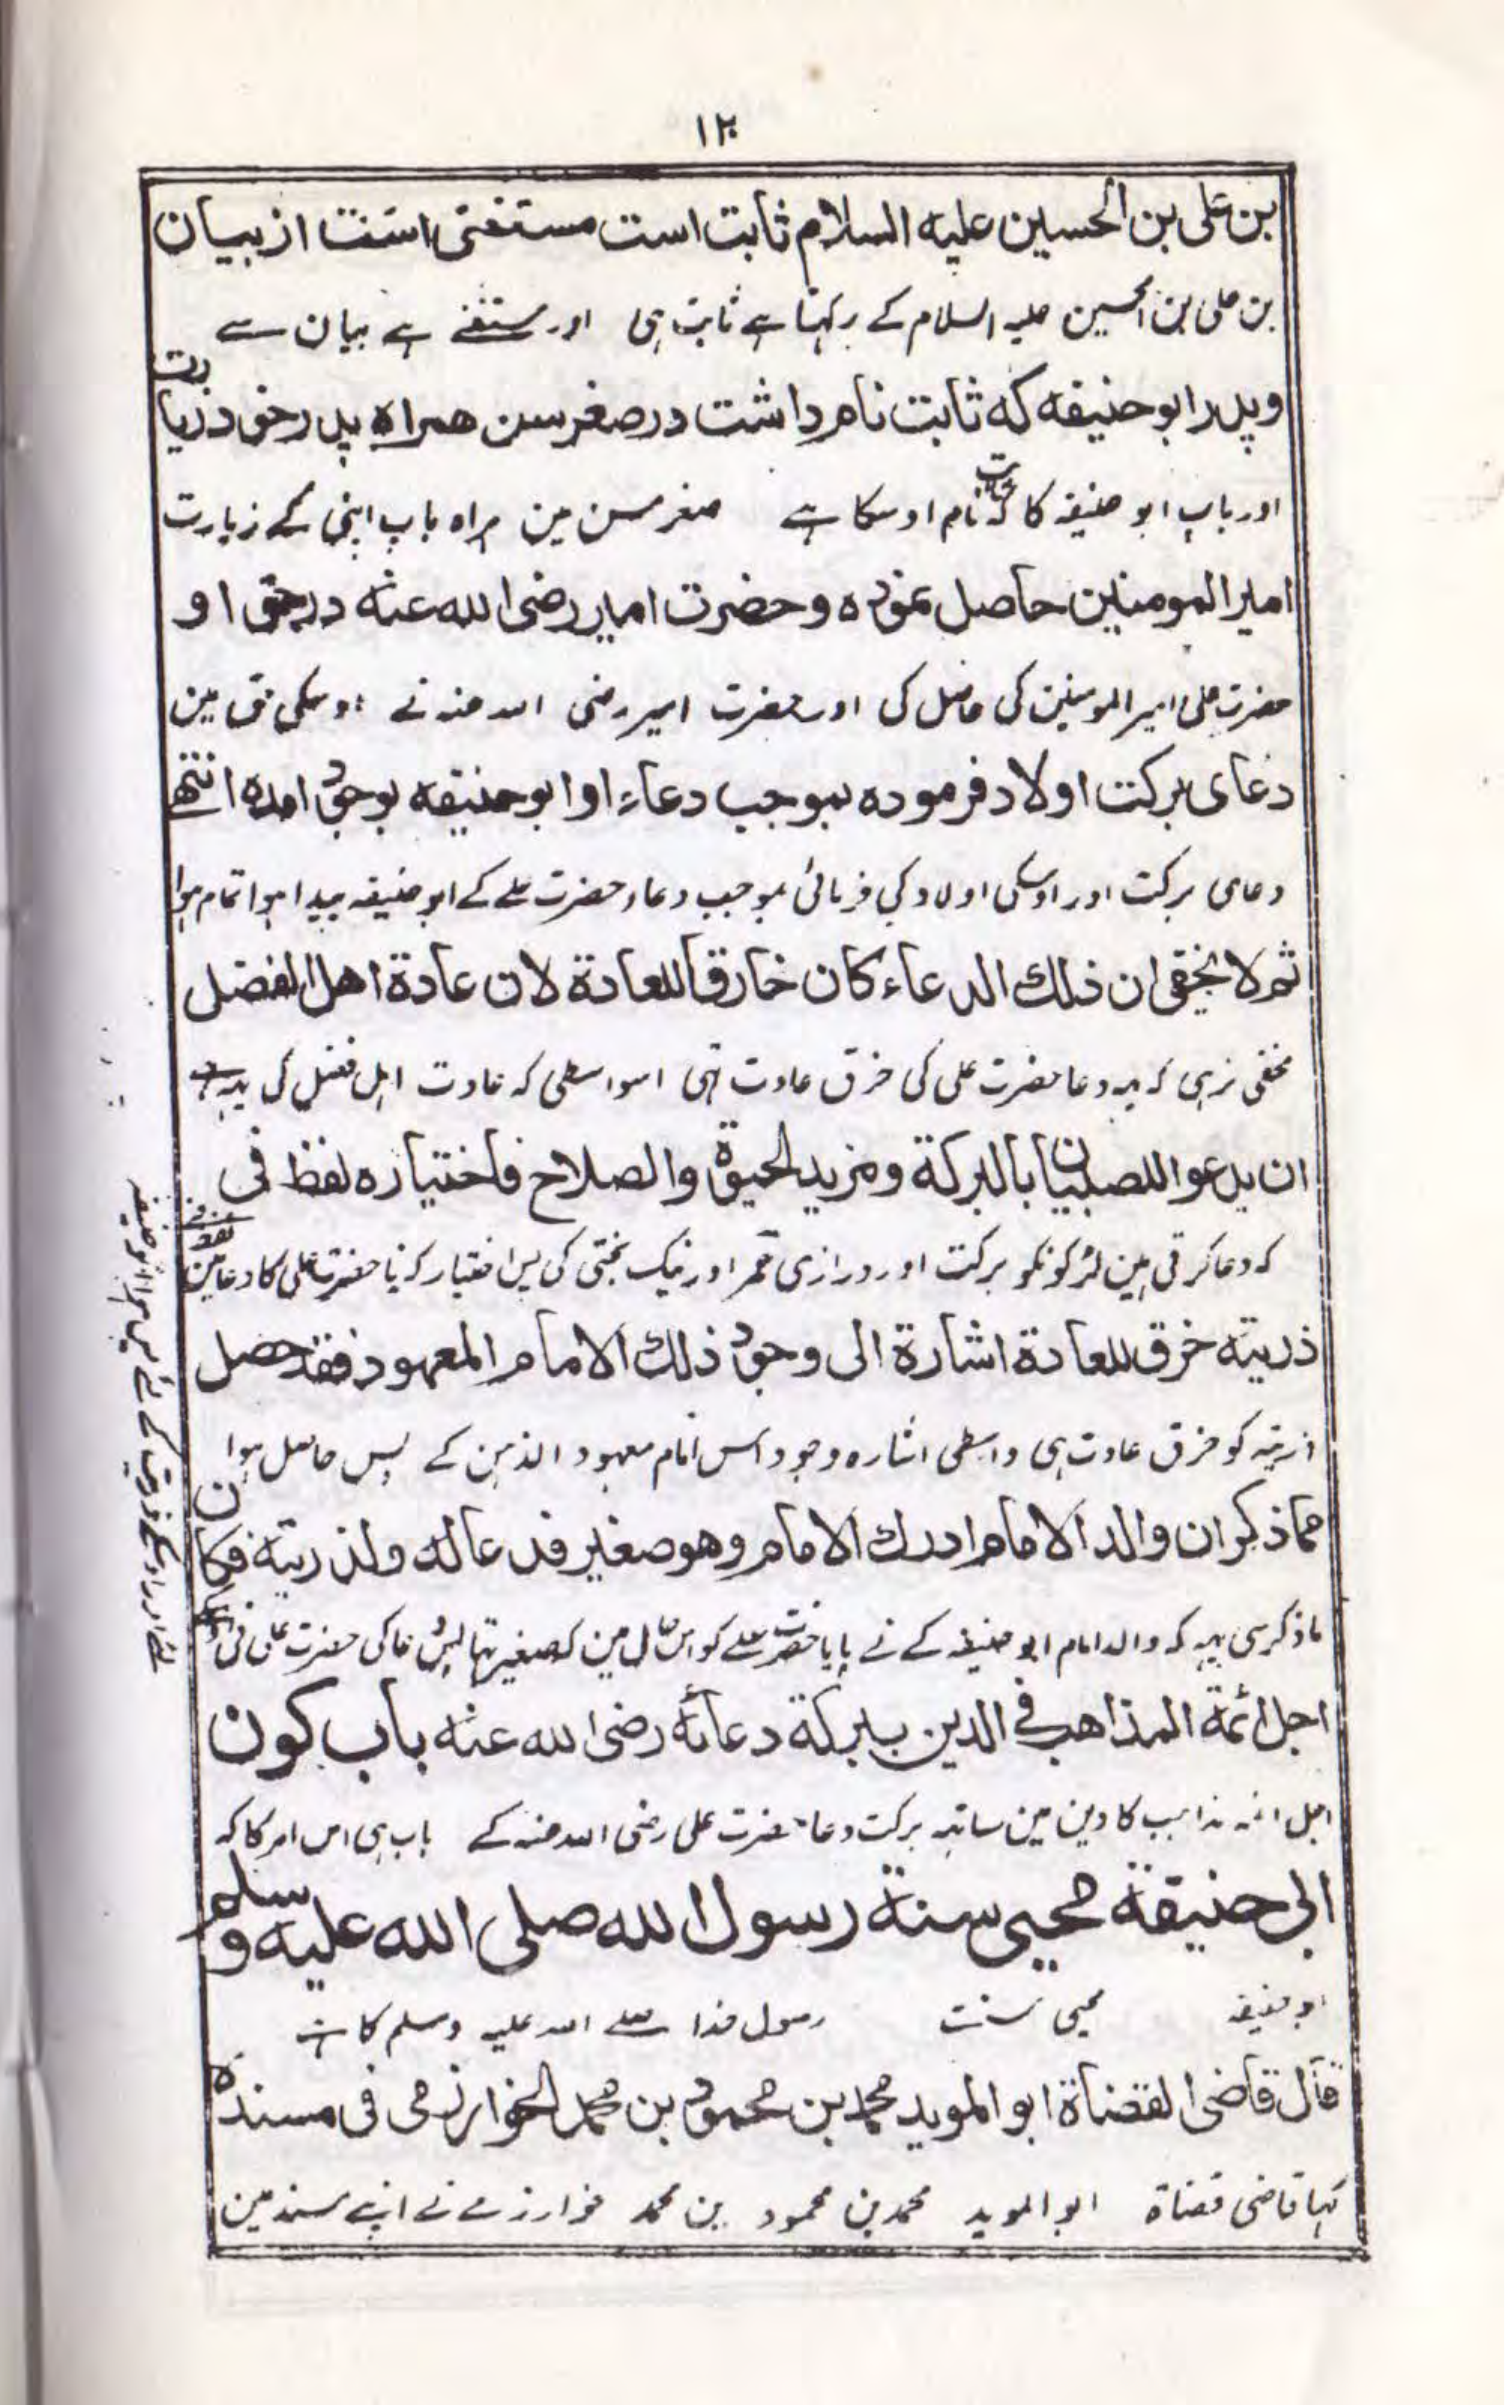 ۱۲
بن علی بن الحسین علیه السلام ثابت است مستغنی است از بیان
بن علی بن الحسین علیہ السلام کے رکہتا ہے ثابت ہی اور مستغنے ہے بیان سے
وپدر ابو حنیفه که ثابت نام داشت در صغر سن همراه پدر خود زیارت
اور باپ ابو حنیفہ کا کہ ثابت نام اوسکا ہے صغر سن مین ہمراہ باپ اپنی کے زیارت
امیر المومنین حاصل نموده و حضرت امیر رضی الله عنه در حق او
حضرت علی امیر المومنین کی حاصل کی اور حضرت امیر رضی اللہ عنہ نے اوسکی حق مین
دعای برکت اولاد فرموده بموجب دعاء او ابو حنیفه بوجود امده انتهے
دعای برکت اور اوسکی اولاد کی فرمائی بموجب دعاء حضرت علے کے ابو حنیفہ پیدا ہوا تمام ہوا
ثم لا یخفی ان ذلك الدعاء کان خارقا للعادة لان عادة اهل الفضل
مخفی نرہی کہ یہہ دعا حضرت علی کی خرق عادت تہی اسواسطی کہ عادت اہل فضل کی یہہ ہے
ان یدعوا للصبیان بالبرکة و مزید الحیوة والصلاح فاختیاره لفظ فی
کہ دعا کرتی ہین لڑکونکو برکت اور درازی عمر اور نیک بختی کی پس اختیار کرنا حضرت علی کا دعا مین لفظ
ذریته خرق للعادة اشارة الی وجود ذلك الامام المعهود فقد حصل
ذریتہ کو خرق عادت ہی واسطی اشارہ وجود اس امام معہود الذہن کے پس حاصل ہوا
مما ذکر ان والد الامام ادرك الامام وهو صغیر فدعا له ولذریته فکان
ما ذکر سی یہہ کہ والد امام ابو حنیفہ کے نے پایا حضرت علے کو اس حال مین کہ صغیر تہا پس دعا کی حضرت علی نی
لئے اور اوسکے ذریت کے لئے پس ہوا ابو حنیفہ
اجل ائمة المذاهب فی الدین ببرکة دعائه رضی الله عنه باب کون
اجل ائمہ مذاہب کا دین مین ساتہہ برکت دعا حضرت علی رضی اللہ عنہ کے باب ہی اس امر کا کہ
ابی حنیفة محیی سنة رسول الله صلی الله علیه وسلم
ابو حنیفہ محیی سنت رسول خدا صلے اللہ علیہ وسلم کا ہے
قال قاضی القضاة ابو الموید محمد بن محمود بن محمد الخوارزمی فی مسنده
کہا قاضی قضاة ابو الموید محمد بن محمود بن محمد خوارزمے نے اپنے مسند مین